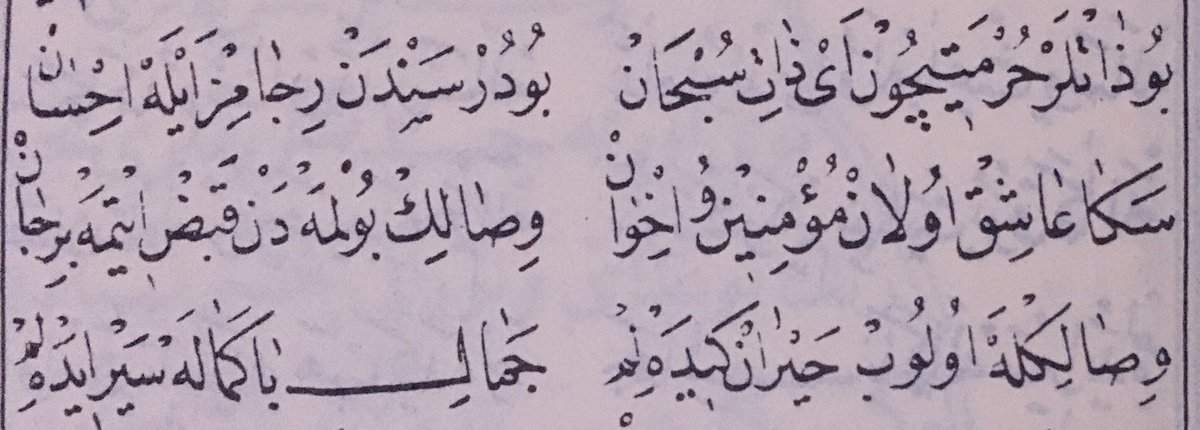 بُوذَاتْلَرْ حُرْمَتِيچُونْ اَىْ ذَاتِ سُبْحَانْ بُودُرْ سَنْدَنْ رِجَامِزْ اَيْلَهْ اِحْسَانْ
سَكَا عَاشِقْ اُولَانْ مُؤْمِنِينْ وُ اِخْوَانْ وِصَالِكْ بُولْمَهْ دَنْ قَبْضْ اِيتْمَهْ بِرْجَانْ
وِصَالِكْلَهْ اُولُوبْ حَيْرَانْ كِيدَهْ لِمْ جَمَالِ بَاكَمَالَهْ سَيْرْ ايدَهْ لِمْ